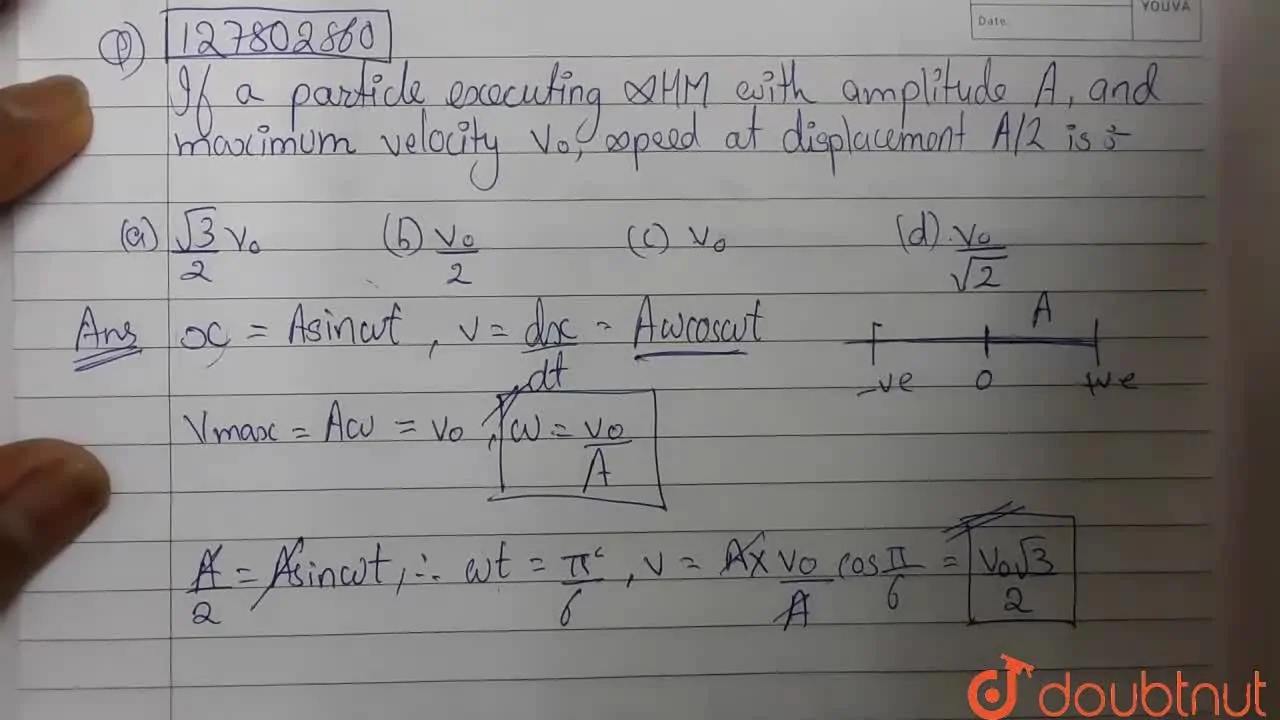 YOUVA
Date
Q) 127802860
If a particle executing SHM with amplitude A, and
maximum velocity V₀, speed at displacement A/2 is :-
(a) √3/2 V₀ (b) V₀/2 (c) V₀ (d) V₀/√2
Ans x = Asinωt, v = dx/dt = Aωcosωt
A
-ve 0 +ve
Vmax = Aω = V₀, ω = V₀/A
A/2 = Asinωt, ∴ ωt = πᶜ/6, v = A x V₀/A cos π/6 = V₀√3/2
doubtnut